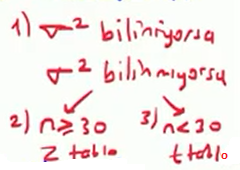 1) σ² biliniyorsa
σ² bilinmiyorsa
2) n≥30 3) n<30
Z tablo t tablo